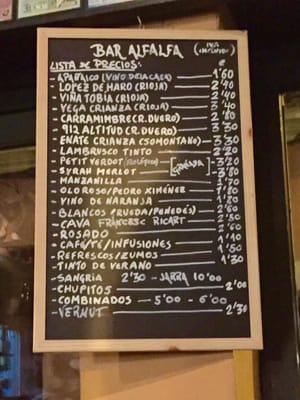 BAR ALFALFA (IVA INCLUIDO)
LISTA DE PRECIOS: €
- (VINO DE LA CASA) 1'60
- LOPEZ DE HARO (RIOJA) 2'40
- VIÑA TOBIA (RIOJA) 2'90
- VEGA CRIANZA (RIOJA) 3'40
- CARRAMIMBRE (R. DUERO) 2'80
- 912 ALTITUD (R. DUERO) 3'30
- ENATE CRIANZA (SOMONTANO) 3'30
- LAMBRUSCO TINTO 2'20
- PETIT VERDOT (ECOLÓGICO) 3'20
- SYRAH MERLOT 3'80
- MANZANILLA 1'70
- OLOROSO/PEDRO XIMÉNEZ 1'80
- VINO DE NARANJA 1'80
- BLANCOS (RUEDA/PENEDÉS)
- CAVA FRANCESC RICART
- ROSADO
- CAFÉ/TÉ/INFUSIONES
- REFRESCOS/ZUMOS 1'50
- TINTO DE VERANO 1'30
- SANGRIA 2'30 - JARRA 10'00
- CHUPITOS 2'00
- COMBINADOS — 5'00 - 6'00
- VERMUT 2'30